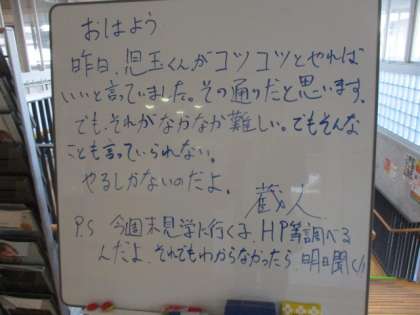 おはよう
昨日、児玉くんが"コツコツとやれば
いいと言っていました。その通りだと思います。
でも、それがなかなか難しい。でもそんな
ことも言っていられない。
やるしかないのだよ。
蔵人
P.S 今週末見学に行く子、HP等調べる
んだよ、それでもわからなかったら、明日聞く!!